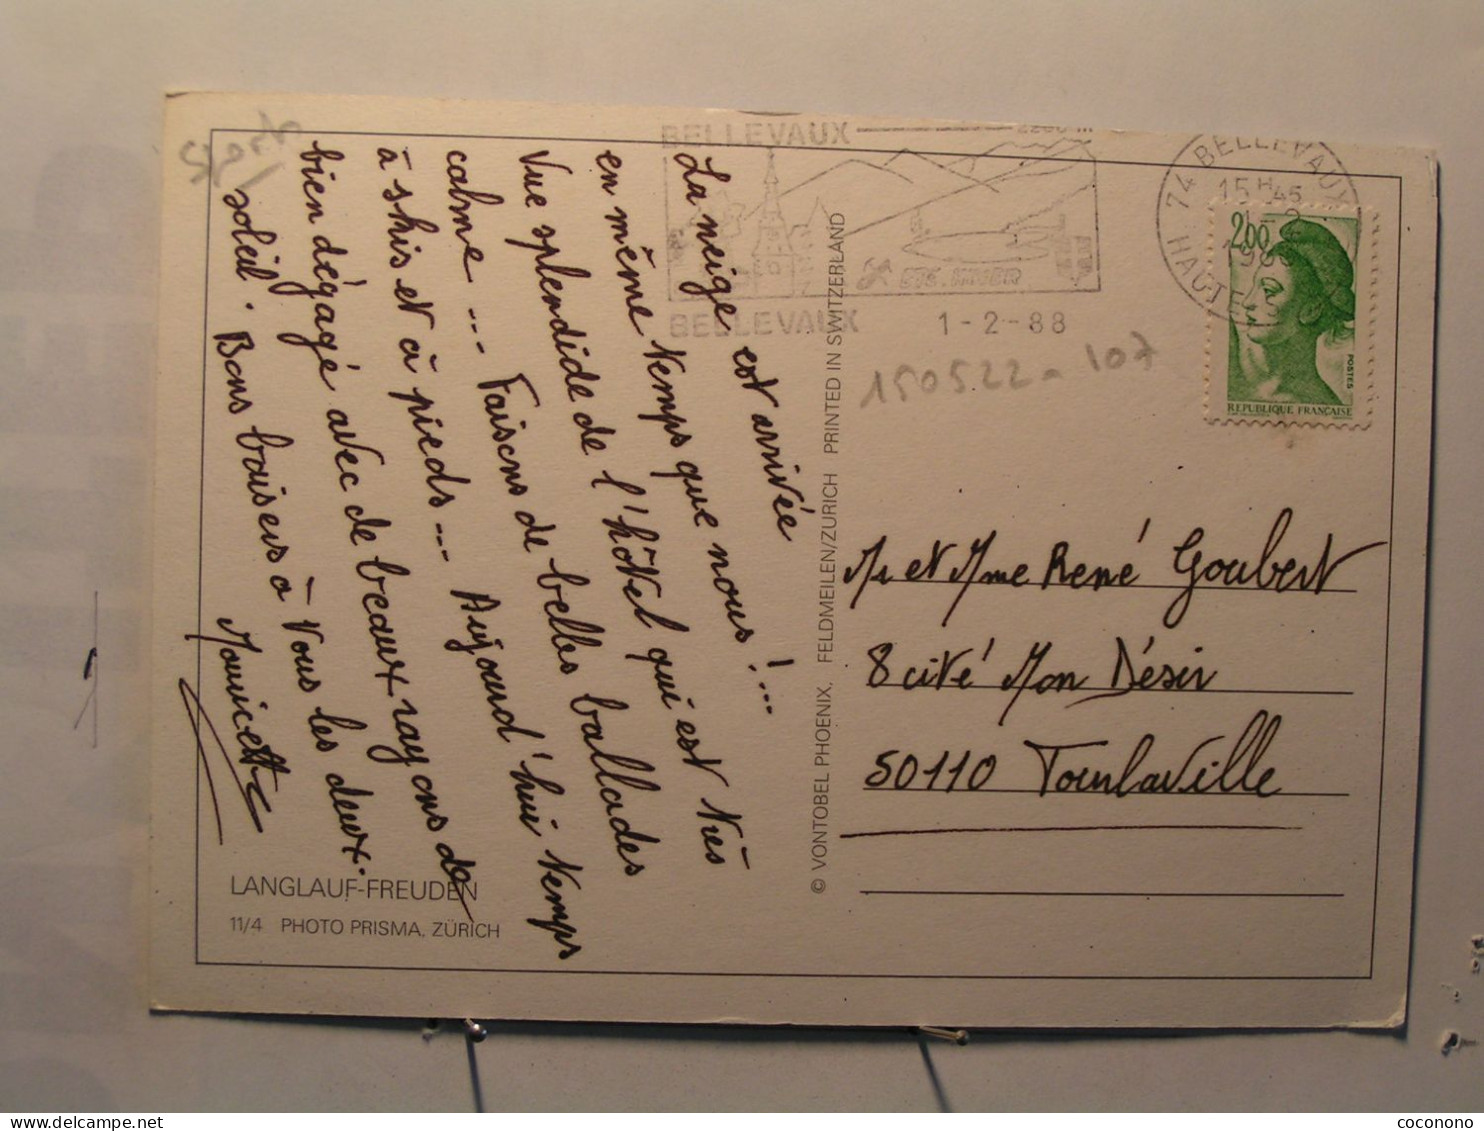 Sport
La neige est arrivée
en même temps que nous !...
Vue splendide de l'hôtel qui est très
calme ... Faisons de belles ballades
à skis et à pieds... Aujourd'hui temps
bien dégagé avec de beaux rayons de
soleil. Bons baisers à vous les deux.
Mauricette
LANGLAUF-FREUDEN
11/4 PHOTO PRISMA, ZÜRICH
© VONTOBEL PHOENIX, FELDMEILEN/ZURICH PRINTED IN SWITZERLAND
BELLEVAUX
ETE. HIVER
BELLEVAUX 1-2-88
74 BELLEVAUX
15H45
1-2
198
HAUTE
2,00
POSTES
REPUBLIQUE FRANÇAISE
150522-107
Mr et Mme René Goubert
8 cité Mon Désir
50110 Tourlaville
coconono